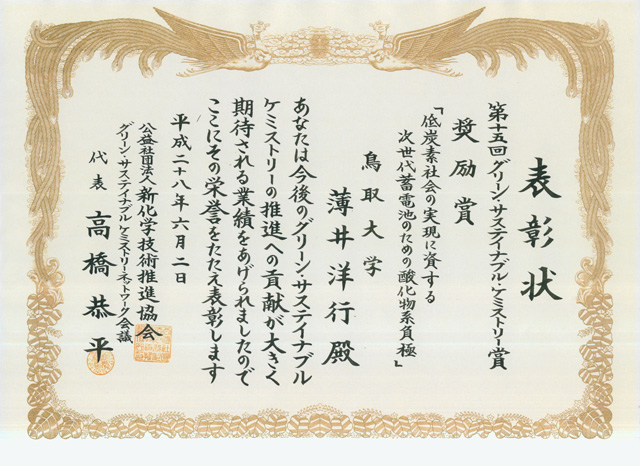 表彰状
第十五回グリーン・サステイナブル・ケミストリー賞
奨励賞
「低炭素社会の実現に資する
次世代蓄電池のための酸化物系負極」
鳥取大学
薄井洋行殿
あなたは今後のグリーン・サステイナブル
ケミストリーの推進への貢献が大きく
期待される業績をあげられましたので
ここにその栄誉をたたえ表彰します
平成二十八年六月二日
公益社団法人新化学技術推進協会
グリーン・サステイナブルケミストリーネットワーク会議
代表 高橋恭平